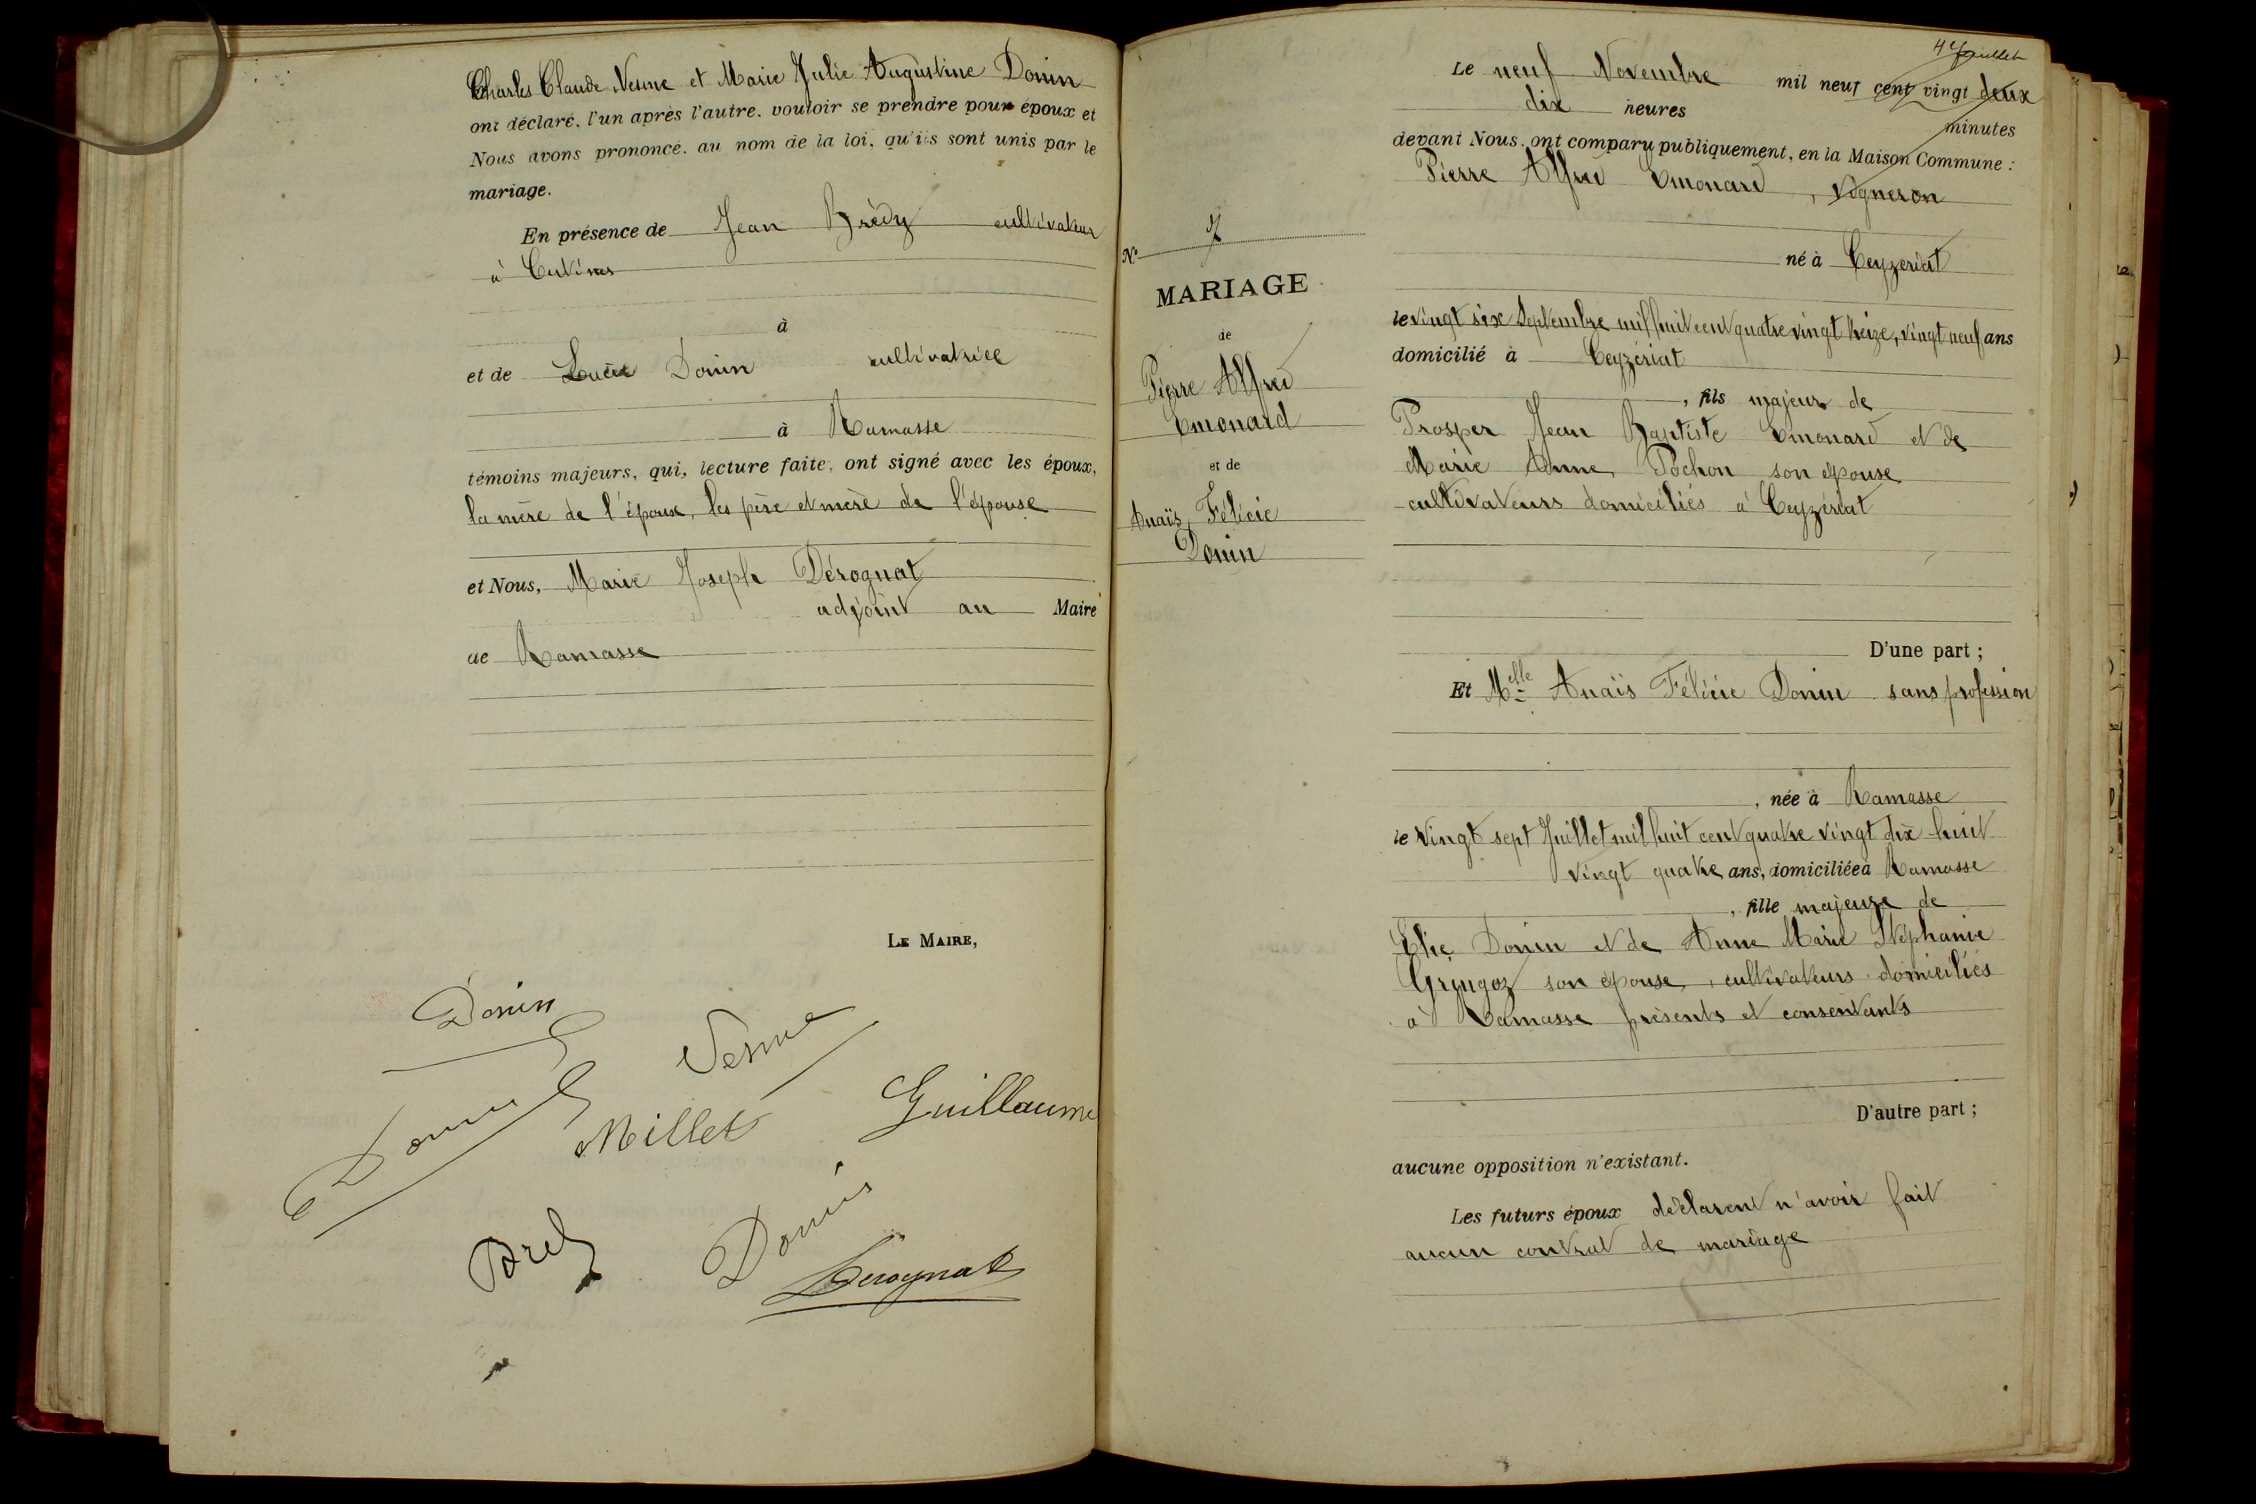 Charles Claude Nesme et Marie Julie Augustine Donin
ont déclaré, l'un après l'autre, vouloir se prendre pour époux et
Nous avons prononcé, au nom de la loi, qu'ils sont unis par le
mariage.
En présence de Jean Brédy cultivateur
à
à
et de Lucie Donin cultivatrice
à Ramasse
témoins majeurs, qui, lecture faite, ont signé avec les époux,
la mère de l'époux, les père et mère de l'épouse
et Nous, Marie Joseph Dérognat
adjoint au Maire
de Ramasse
LE MAIRE,
Donin
Nesme
Donin
Millet
Guillaume
Donin
Dérognat
4e feuillet
Le neuf Novembre mil neuf cent vingt deux
dix heures minutes
devant Nous, ont comparu publiquement, en la Maison Commune :
Pierre Alfred Emonard, vigneron
né à Ceyzériat
le vingt six Septembre mil huit cent quatre vingt treize, vingt neuf ans
domicilié à Ceyzériat
, fils majeur de
Prosper Jean Baptiste Emonard et de
Marie Anne Pochon son épouse
cultivateurs domiciliés à Ceyzériat
D'une part ;
Et Melle Anaïs Félicie Donin sans profession
, née à Ramasse
le vingt sept Juillet mil huit cent quatre vingt dix huit
vingt quatre ans, domiciliée à Ramasse
, fille majeure de
Elie Donin et de Anne Marie Stéphanie
Gringoz son épouse, cultivateurs domiciliés
à Ramasse présents et consentants
D'autre part ;
aucune opposition n'existant.
Les futurs époux déclarent n'avoir fait
aucun contrat de mariage
No 7
MARIAGE
de
Pierre Alfred
Emonard
et de
Anaïs Félicie
Donin